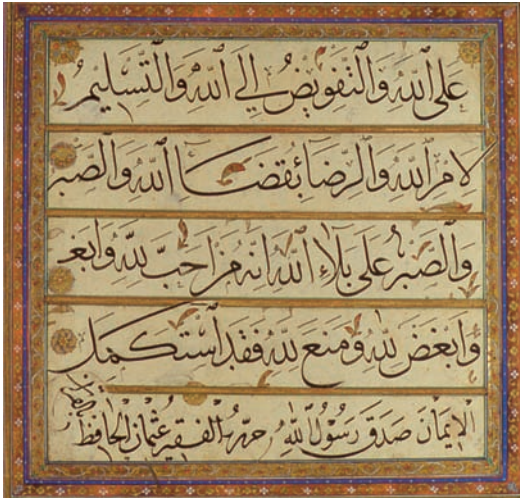 على الله والتفويض إلى الله والتسليم
لامر الله والرضا بقضا الله والصبر
والصبر على بلاء الله انه من احب لله وابغ
وابغض لله ومنع لله فقد استكمل
الإيمان صدق رسول الله حرره الفقير عثمان الحافظ